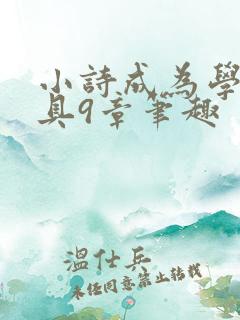 小詩成為學
具9章筆趣
溫仕兵
未經同意禁止轉載